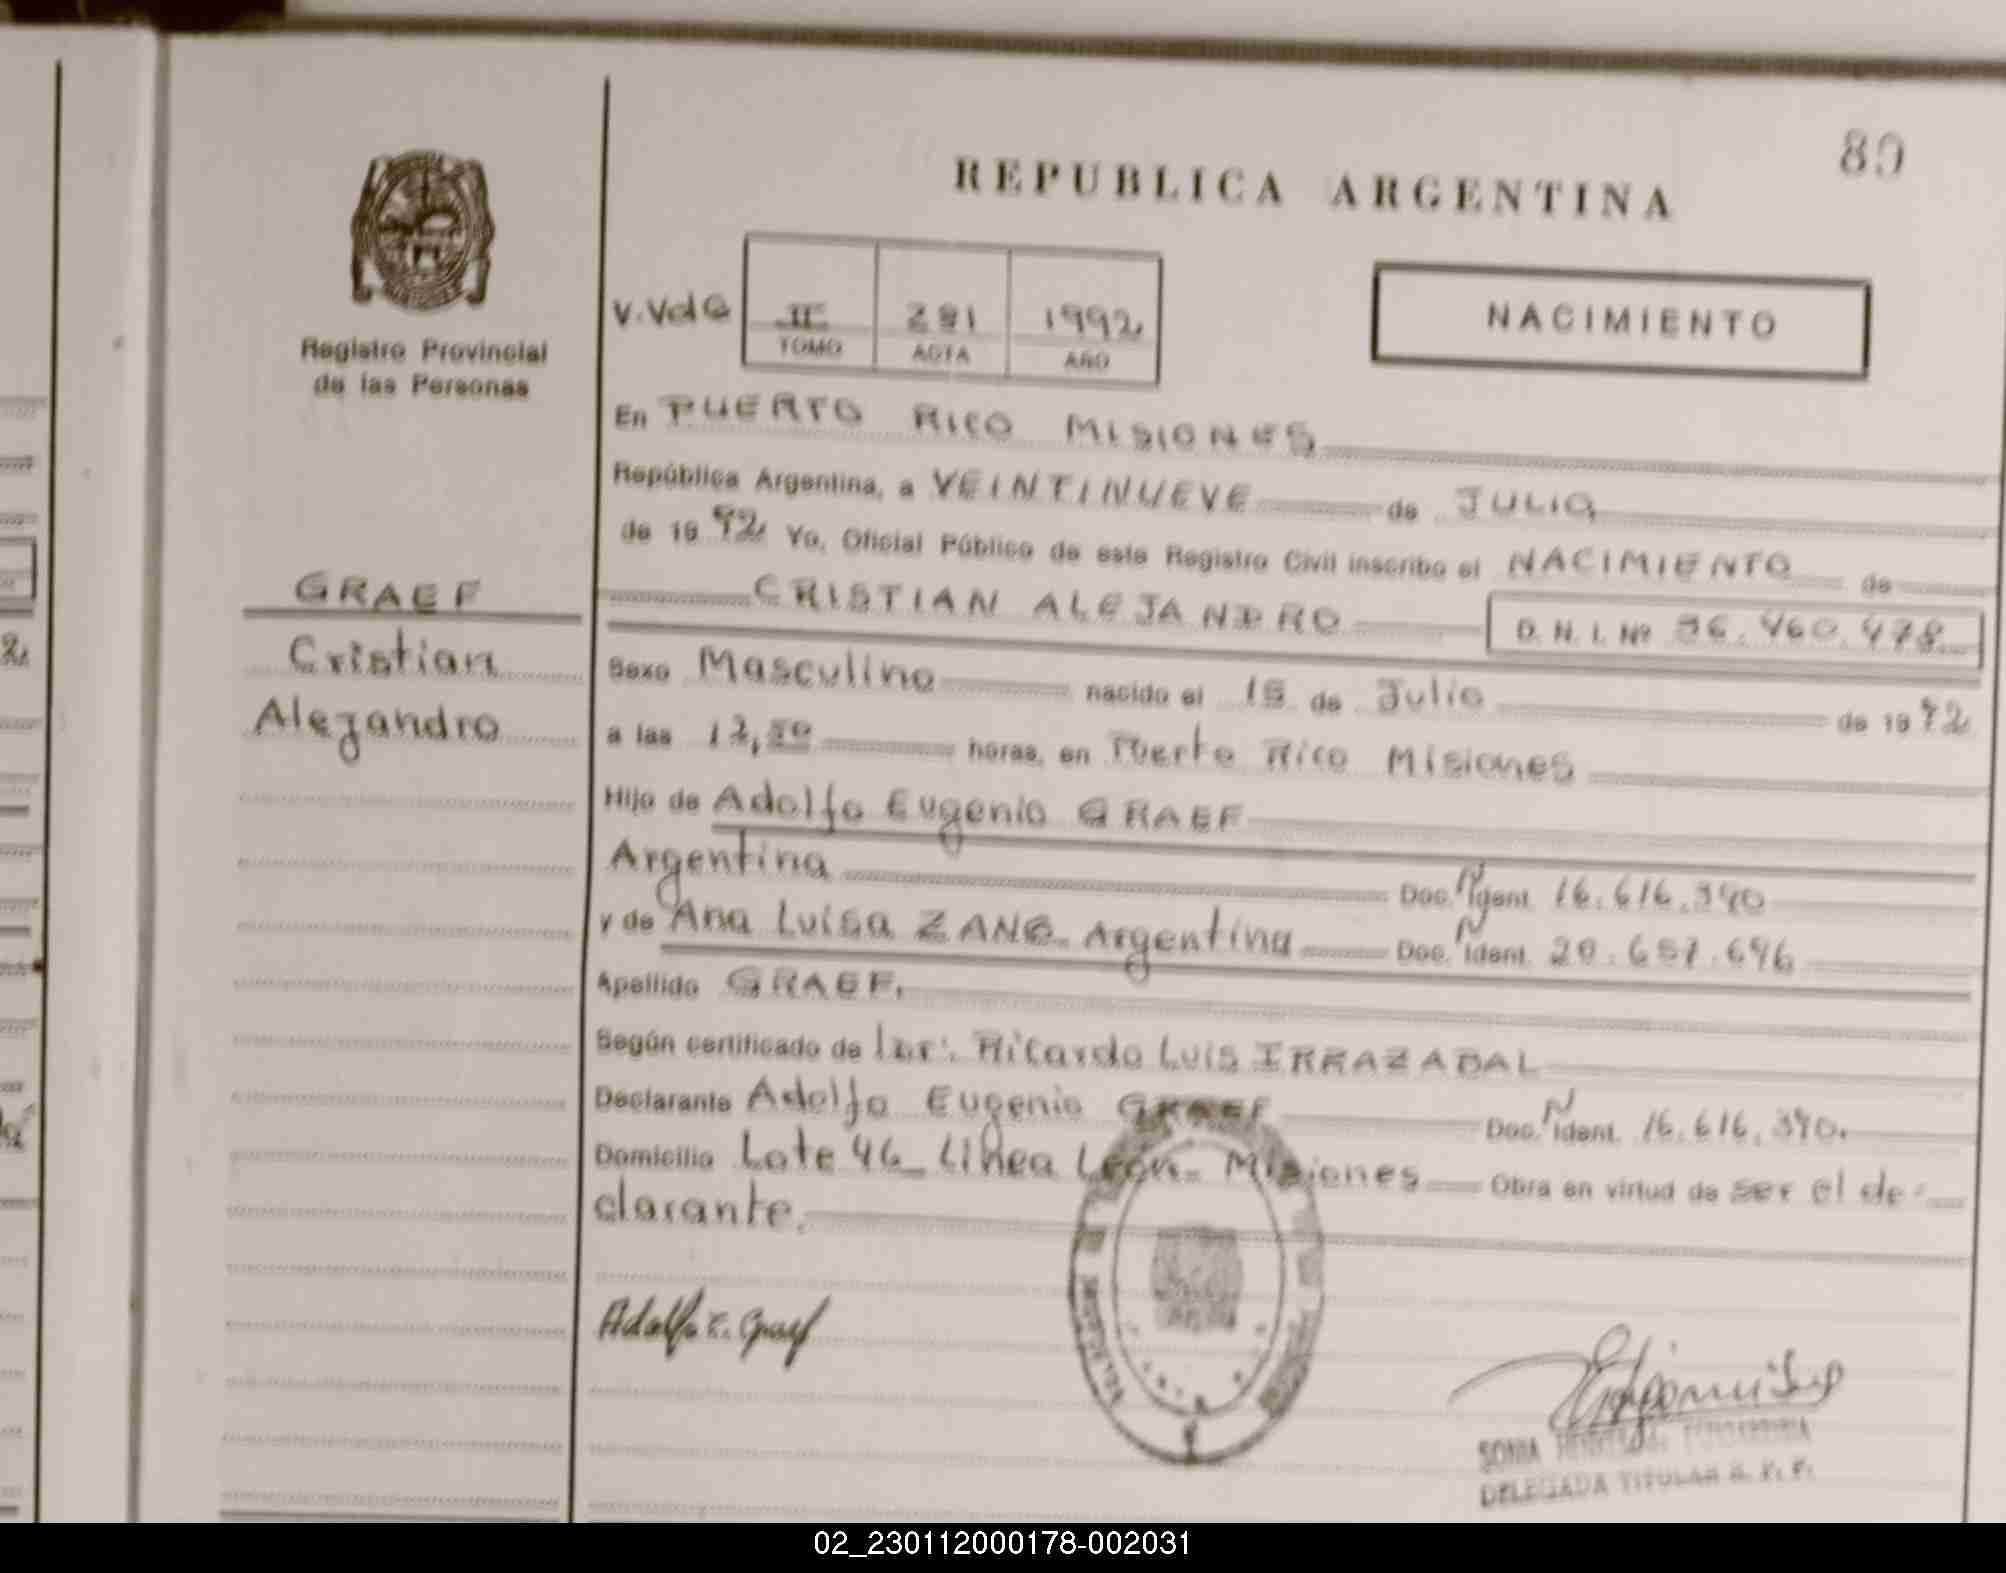 80
REPUBLICA ARGENTINA
V. Vdg II 281 1992
TOMO ACTA AÑO
NACIMIENTO
Registro Provincial
de las Personas
GRAEF
Cristian
Alejandro
En PUERTO RICO MISIONES
República Argentina, a VEINTINUEVE de JULIO
de 19 92 Yo, Oficial Público de este Registro Civil inscribo el NACIMIENTO de
CRISTIAN ALEJANDRO D. N. I. Nº 36.460.478
Sexo Masculino nacido el 15 de Julio de 19 92
a las horas, en Puerto Rico Misiones
Hijo de Adolfo Eugenio GRAEF
Argentina Doc. N Ident. 16.616.390
y de Ana Luisa ZANG. Argentina Doc. N Ident. 20.657.696
Apellido GRAEF.
Según certificado de Ricardo Luis IRRAZABAL
Declarante Adolfo Eugenio GRAEF Doc. N Ident. 16.616.390.
Domicilio Lote 46_ Linea León_ Misiones Obra en virtud de ser el de-
clarante.
Adolfo E. Graef
SONIA
DELEGADA TITULAR R. P. P.
02_230112000178-002031